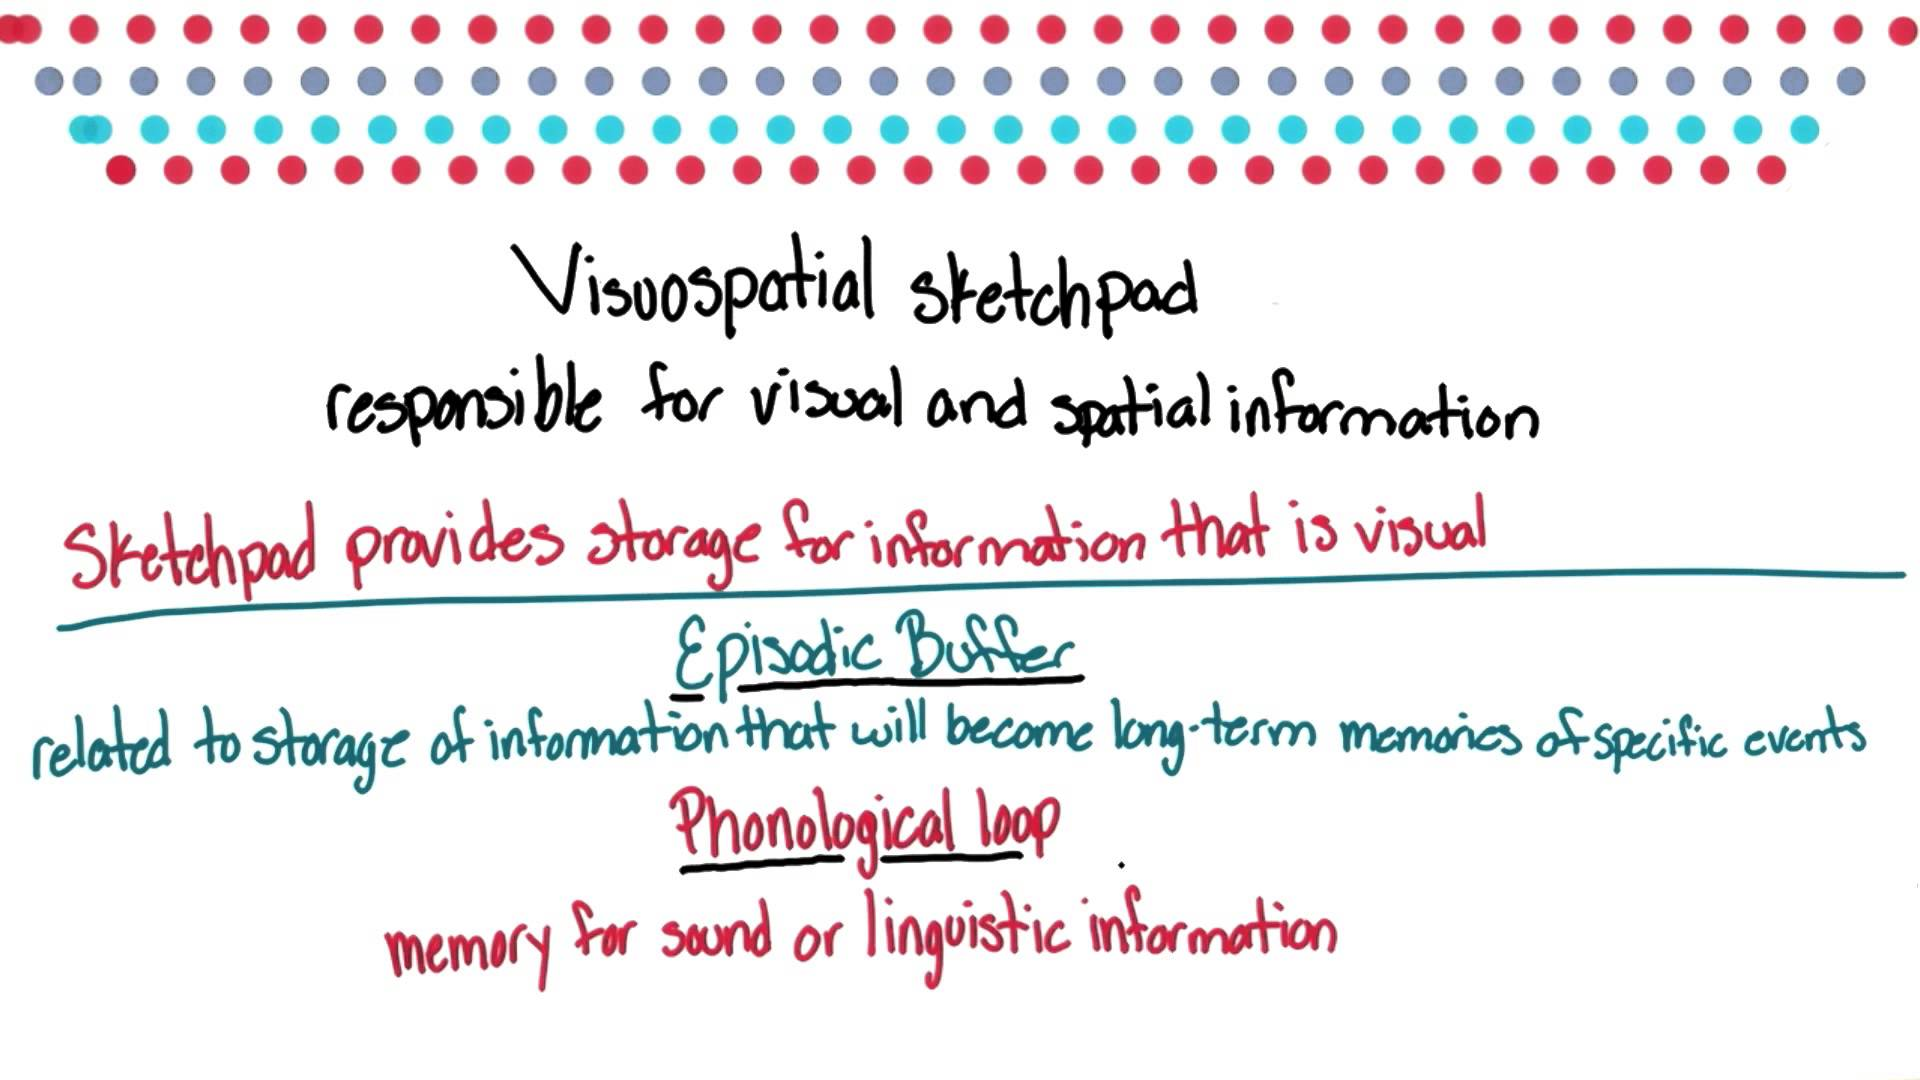 Visuospatial sketchpad
responsible for visual and spatial information
Sketchpad provides storage for information that is visual
Episodic Buffer
related to storage of information that will become long-term memories of specific events
Phonological loop
memory for sound or linguistic information